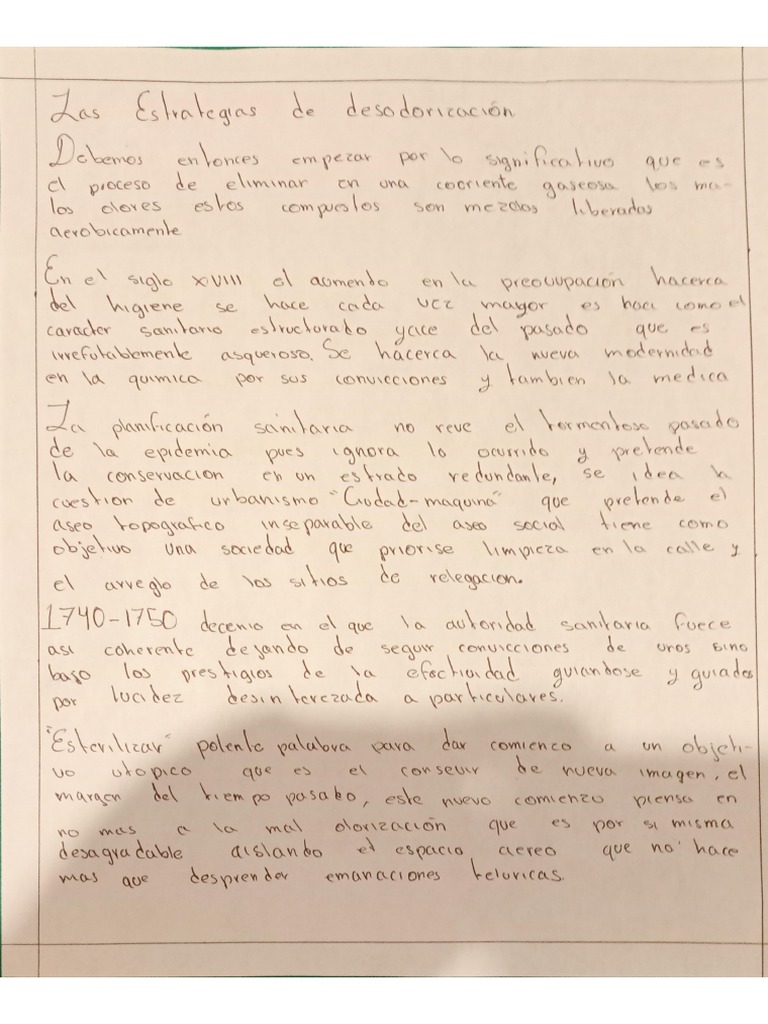 Las Estrategias de desodorización
Debemos entonces empezar por lo significativo que es
el proceso de eliminar en una cocriente gaseosa los ma-
los olores estos compuestos son mezclas liberadas
aerobicamente
En el siglo XVIII el aumento en la preocupación hacerca
del higiene se hace cada vez mayor es haci como el
caracter sanitario estructorado yace del pasado que es
irrefutablemente asqueroso. Se hacerca la nueva modernidad
en la quimica por sus convicciones y tambien la medica
La planificación sanitaria no reve el tormentoso pasado
de la epidemia pues ignora lo ocurrido y pretende
la conservacion en un estrado redundante, se idea la
cuestion de urbanismo "Ciudad-maquina" que pretende el
aseo topografico inseparable del aseo social tiene como
objetivo una sociedad que priorise limpieza en la calle y
el arreglo de los sitios de relegacion.
1740-1750 decenio en el que la autoridad sanitaria fuece
asi coherente dejando de seguir convicciones de unos sino
bajo los prestigios de la efectividad guiandose y guiados
por lucidez desinterezada a particulares.
"Esterilizar" potente palabra para dar comienco a un objeti-
vo utopico que es el conseuir de nueva imagen, el
margen del tiempo pasabo, este nuevo comienzo piensa en
no mas a la mal olorización que es por si misma
desagradable aislando el espacio aereo que no hace
mas que desprender emanaciones teluricas.